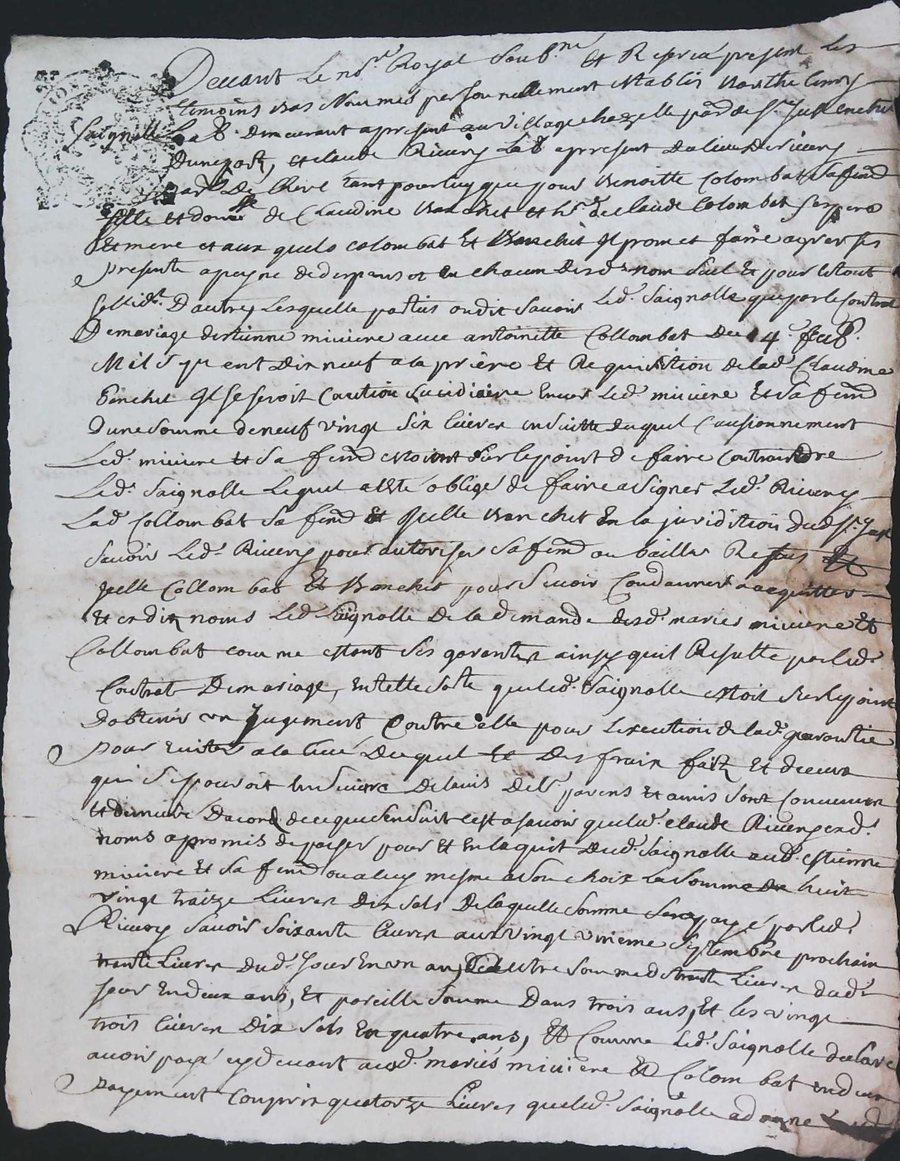 Devant Le no.re Royal Soub.né Et Reservé presant Les
temoins bas Nommes personnellement establis barthelemy
Saignolle La.b. demeurant apresant au village par.
Et claude Rivery La.b apresant du lieu de Rivery
par.se De tant pour luy que pour benoitte Colombat sa fem.
fille et don.re de Claudine banchet et h.re de claude Colombat Ses pere
Et mere et aux quels colombat Et banchet Il promet faire agreer Ses
presante a peyne de despans et En chacun desd. nom Seul Et pour le tout
sollid.t D'autres Lesquelle parties ont dit Savoir Led. Saignolle que par le Contrat
De mariage d'estienne miviere avec antoinette Collombat Du 14 feb.
Mil Sept cent Dix neuf a la priere Et Requisition de lad. Claudine
banchet Il Se Seroit Caution envers Led. miviere Et Sa fem.
D'une Somme de neuf vingt Six Livres En Suitte duquel Causionnement
Led. miviere Et Sa fem. estoient Sur le point de faire Contraindre
Led. Saignolle Lequel a este obligé de faire asigner Led. Rivery
Lad. Collombat Sa fem. Et banchet En la juridition dud. S.t
Savoir Led. Rivery pour autoriser Sa fem. ou bailler Refus Et
Icelle Collombat Et banchet pour Se voir Condamner a acquitter
Et esdits noms Led. Saignolle De la demande desd. maries miviere Et
Collombat comme estant Ses garantes ainsy quil Resulte par led.
Contrat De mariage, En telle Sorte que led. Saignolle estoit Sur le point
D'obtenir un Jugement Contre elle pour L'exécution de lad. garantie
pour eviter a la Duquel Et Des frais faits Et de ceux
qui Se pouroit Ensuivre De lavis de L. parens Et amis Sont Convenus
et demeurés Dacord de ce que Ensuit cest a savoir que led. claude Rivery esd.
noms a promis de payer pour Et En laquit Dud. Saignolle aud. estienne
miviere Et Sa fem. ou a luy mesme a Son choix La Somme de huit
vingt traize Livres Dix Sols De laquelle Somme Sera payé par led.
Rivery Savoir Soixante Livres aux vingt Septembre prochain
trante Livres Dud. Jour En un an, autre Somme de trante Livres dud.
Jour En deux ans, Et pareille Somme Dans trois ans, Et les vingt
trois Livres Dix Sols En quatre ans, Et Comme Led. Saignolle declare
avoir payé cy devant ausd. mariés miviere Et Colombat En deux
payement Compris quatorze Livres que led. Saignolle a donne